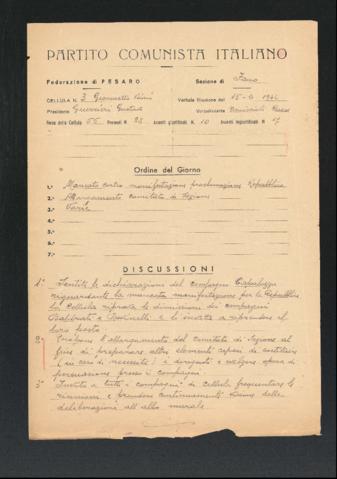 PARTITO COMUNISTA ITALIANO
Federazione di PESARO Sezione di Fano
CELLULA N. 3 Verbale Riunione del 15-6 1946
Presidente Verbalizzante
Forza della Cellula 55 Presenti N. 28 Assenti giustificati N. 10 Assenti ingiustificati N. 17
Ordine del Giorno
1.° Mancata manifestazione proclamazione Repubblica
2.° Allargamento comitato di Sezione
3.° Varie
4.°
5.°
6.°
7.°
DISCUSSIONI
1° Sentite le dichiarazioni del compagno
riguardante la mancata manifestazione per la Repubblica
la Cellula le dimissioni dei compagni
e e li invita a riprendere il
loro posto.
2° l'allargamento del comitato di Sezione al
fine di preparare altri elementi capaci di sostituire
(in casi di necessità) i dirigenti e svolgere opera di
persuasione presso i compagni.
3° Invito a tutti i compagni di cellula frequentare le
riunioni e prendere continuamente visione delle
deliberazioni all'albo murale.